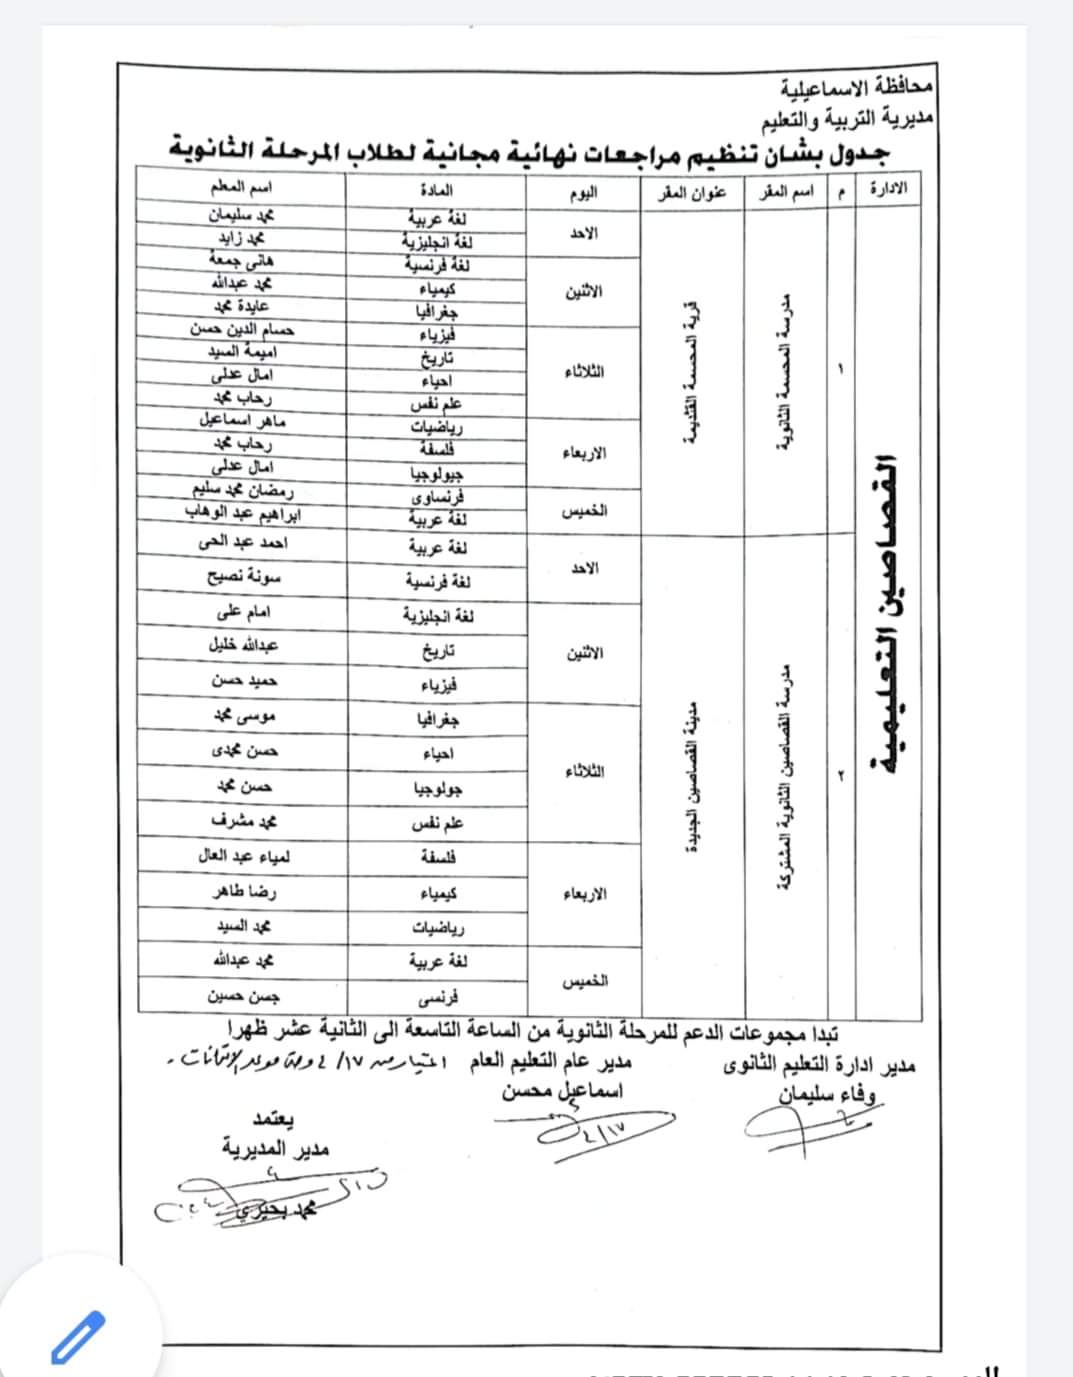 محافظة الاسماعيلية
مديرية التربية والتعليم
جدول بشان تنظيم مراجعات نهائية مجانية لطلاب المرحلة الثانوية
الادارة م اسم المقر عنوان المقر اليوم المادة اسم المعلم
القصاصين التعليمية
١ مدرسة المحسمة الثانوية قرية المحسمة القديمة
الاحد لغة عربية محمد سليمان
لغة انجليزية محمد زايد
الاثنين لغة فرنسية هانى جمعة
كيمياء محمد عبدالله
جغرافيا عايدة محمد
الثلاثاء فيزياء حسام الدين حسن
تاريخ اميمة السيد
احياء امال عدلى
علم نفس رحاب محمد
الاربعاء رياضيات ماهر اسماعيل
فلسفة رحاب محمد
جيولوجيا امال عدلى
الخميس فرنساوى رمضان محمد سليم
لغة عربية ابراهيم عبد الوهاب
٢ مدرسة القصاصين الثانوية المشتركة مدينة القصاصين الجديدة
الاحد لغة عربية احمد عبد الحى
لغة فرنسية سونة نصيح
الاثنين لغة انجليزية امام على
تاريخ عبدالله خليل
فيزياء حميد حسن
الثلاثاء جغرافيا موسى محمد
احياء حسن مجدى
جولوجيا حسن محمد
علم نفس محمد مشرف
الاربعاء فلسفة لمياء عبد العال
كيمياء رضا طاهر
رياضيات محمد السيد
الخميس لغة عربية محمد عبدالله
فرنسى جسن حسين
تبدا مجموعات الدعم للمرحلة الثانوية من الساعة التاسعة الى الثانية عشر ظهرا
مدير ادارة التعليم الثانوى مدير عام التعليم العام
من ٤/١٧ وحتى موعد الإمتحانات
وفاء سليمان اسماعيل محسن
٤/١٧
يعتمد
مدير المديرية
محمد بحيري